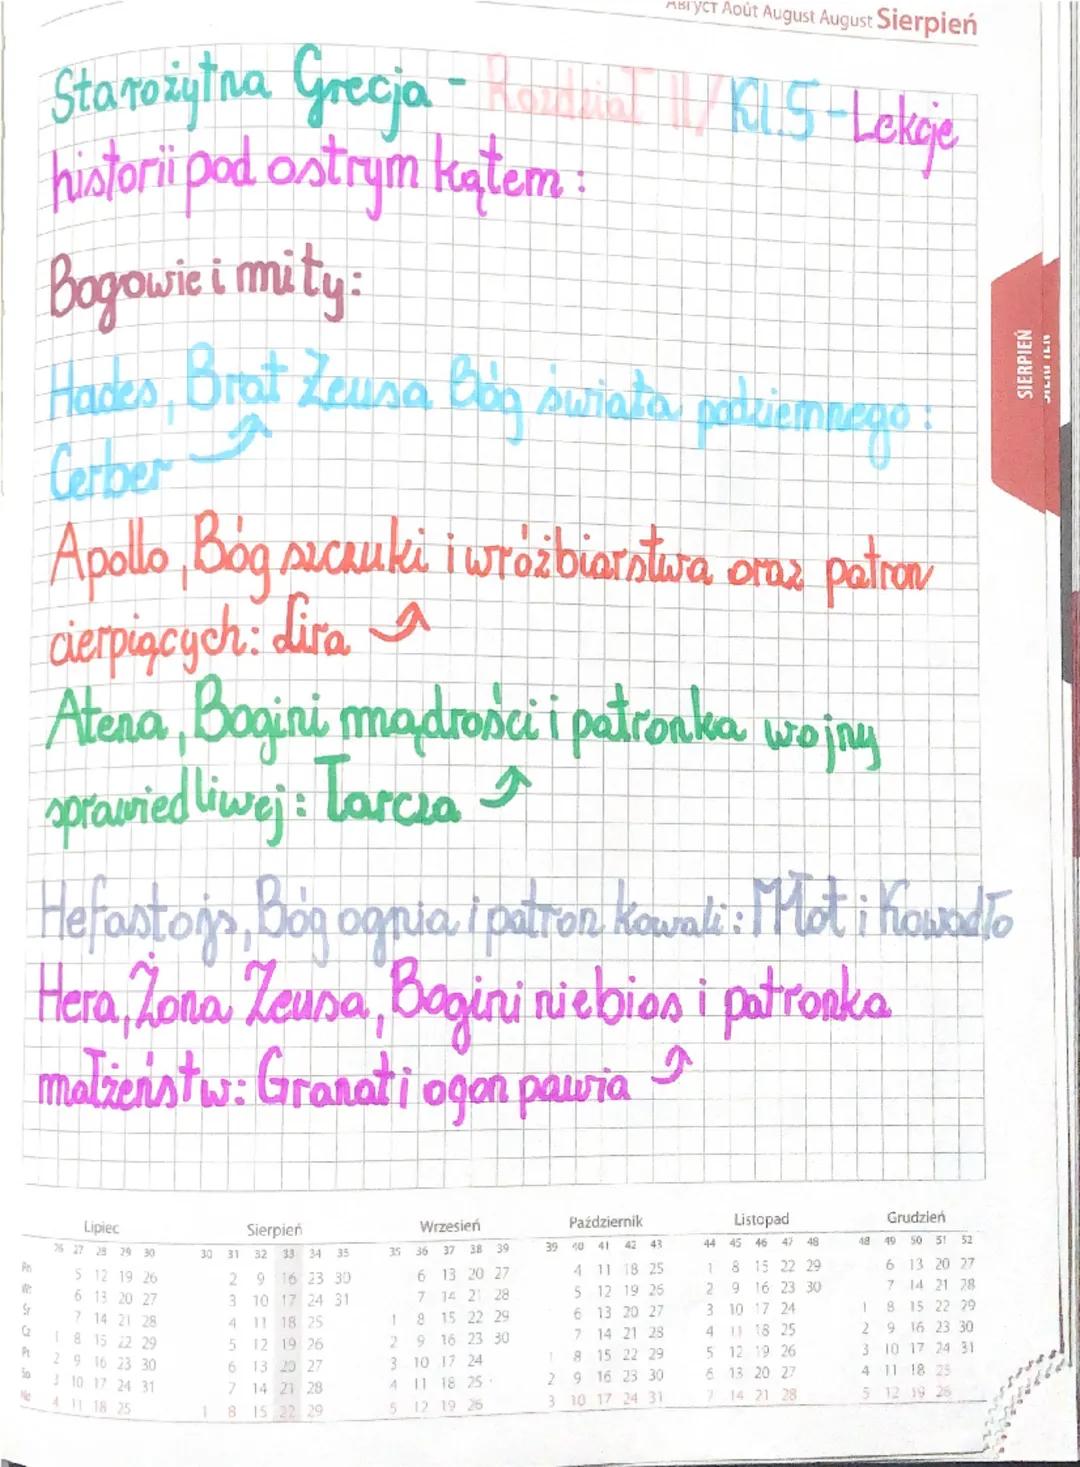 Август Août August August Sierpień
Starożytna Grecja - Rozdział II/Kl.5-Lekcje
historii pod ostrym kątem:
Bogowie i mity:
Hades, Brat Zeusa Bóg świata podziemnego:
Cerber
Apollo, Bóg szczuki i wróżbiarstwa oraz patron
cierpiących: Lira
Atena, Bogini mądrości i patronka wojny
sprawiedliwej: Tarcza
Hefastojs, Bóg ognia i patron kowali: Młot i Kowadło
Hera, Żona Zeusa, Bogini niebios i patronka
małżeństw: Granat i ogon pawia
SIERPIEŃ
Lipiec Sierpień Wrzesień Październik Listopad Grudzień
26 27 28 29 30 30 31 32 33 34 35 35 36 37 38 39 39 40 41 42 43 44 45 46 47 48 48 49 50 51 52
Pn 5 12 19 26 2 9 16 23 30 6 13 20 27 4 11 18 25 1 8 15 22 29 6 13 20 27
Wt 6 13 20 27 3 10 17 24 31 7 14 21 28 5 12 19 26 2 9 16 23 30 7 14 21 28
Śr 7 14 21 28 4 11 18 25 1 8 15 22 29 6 13 20 27 3 10 17 24 1 8 15 22 29
Cz 1 8 15 22 29 5 12 19 26 2 9 16 23 30 7 14 21 28 4 11 18 25 2 9 16 23 30
Pt 2 9 16 23 30 6 13 20 27 3 10 17 24 1 8 15 22 29 5 12 19 26 3 10 17 24 31
So 3 10 17 24 31 7 14 21 28 4 11 18 25 2 9 16 23 30 6 13 20 27 4 11 18 25
Nd 4 11 18 25 1 8 15 22 29 5 12 19 26 3 10 17 24 31 7 14 21 28 5 12 19 26